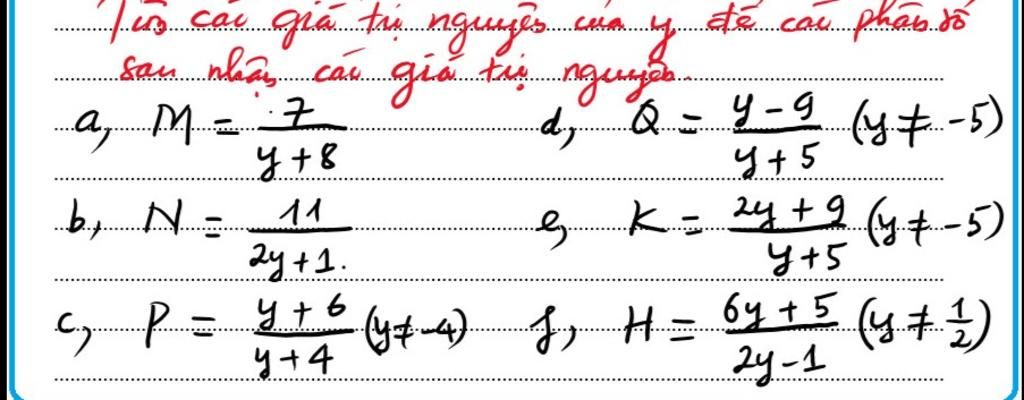 Tìm các giá trị nguyên của y để các phân số
sau nhận các giá trị nguyên.
a, M = 7/(y + 8)
d, Q = (y - 9)/(y + 5) (y ≠ -5)
b, N = 11/(2y + 1).
e, K = (2y + 9)/(y + 5) (y ≠ -5)
c, P = (y + 6)/(y + 4) (y ≠ -4)
f, H = (6y + 5)/(2y - 1) (y ≠ 1/2)